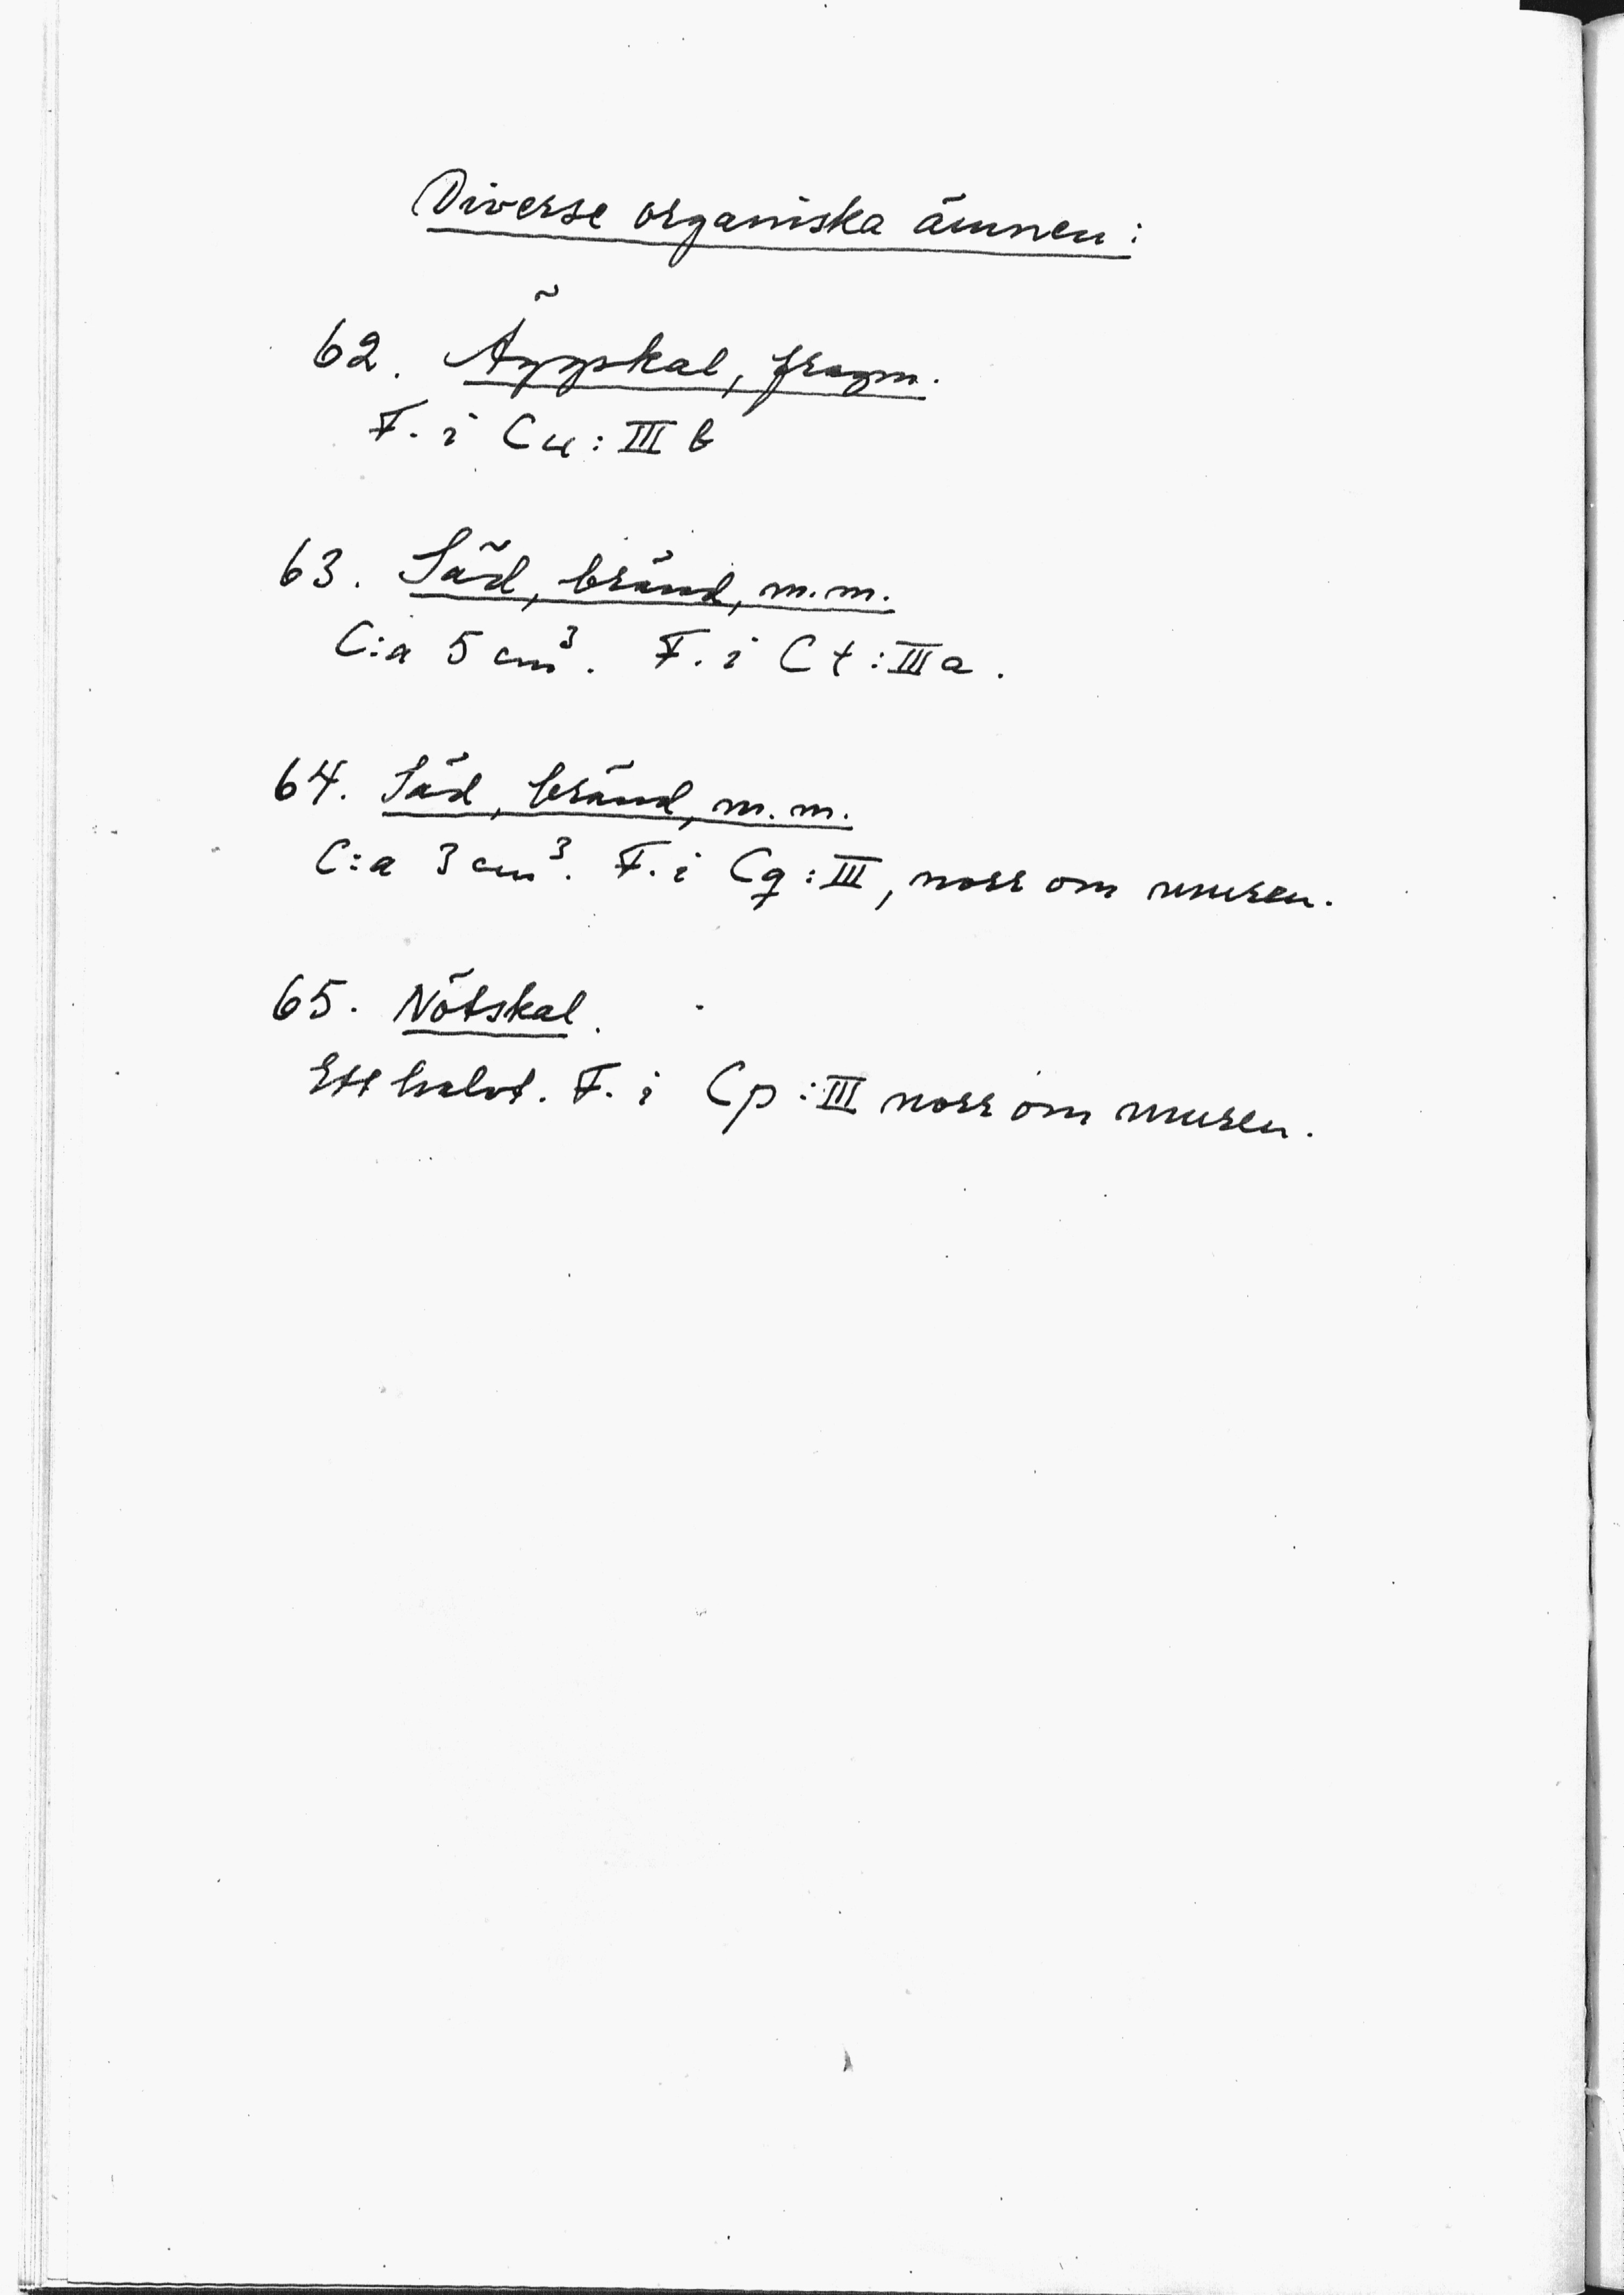 Diverse organiska ämnen:
62. Äggskal, fragm.
F. i Cu: III b
63. Säd, bränd, m.m.
C:a 5 cm³. F. i Ct: III a.
64. Säd, bränd, m.m.
C:a 3 cm³. F. i Cq: III, norr om muren.
65. Nötskal.
Ett halvt. F. i Cp: III norr om muren.